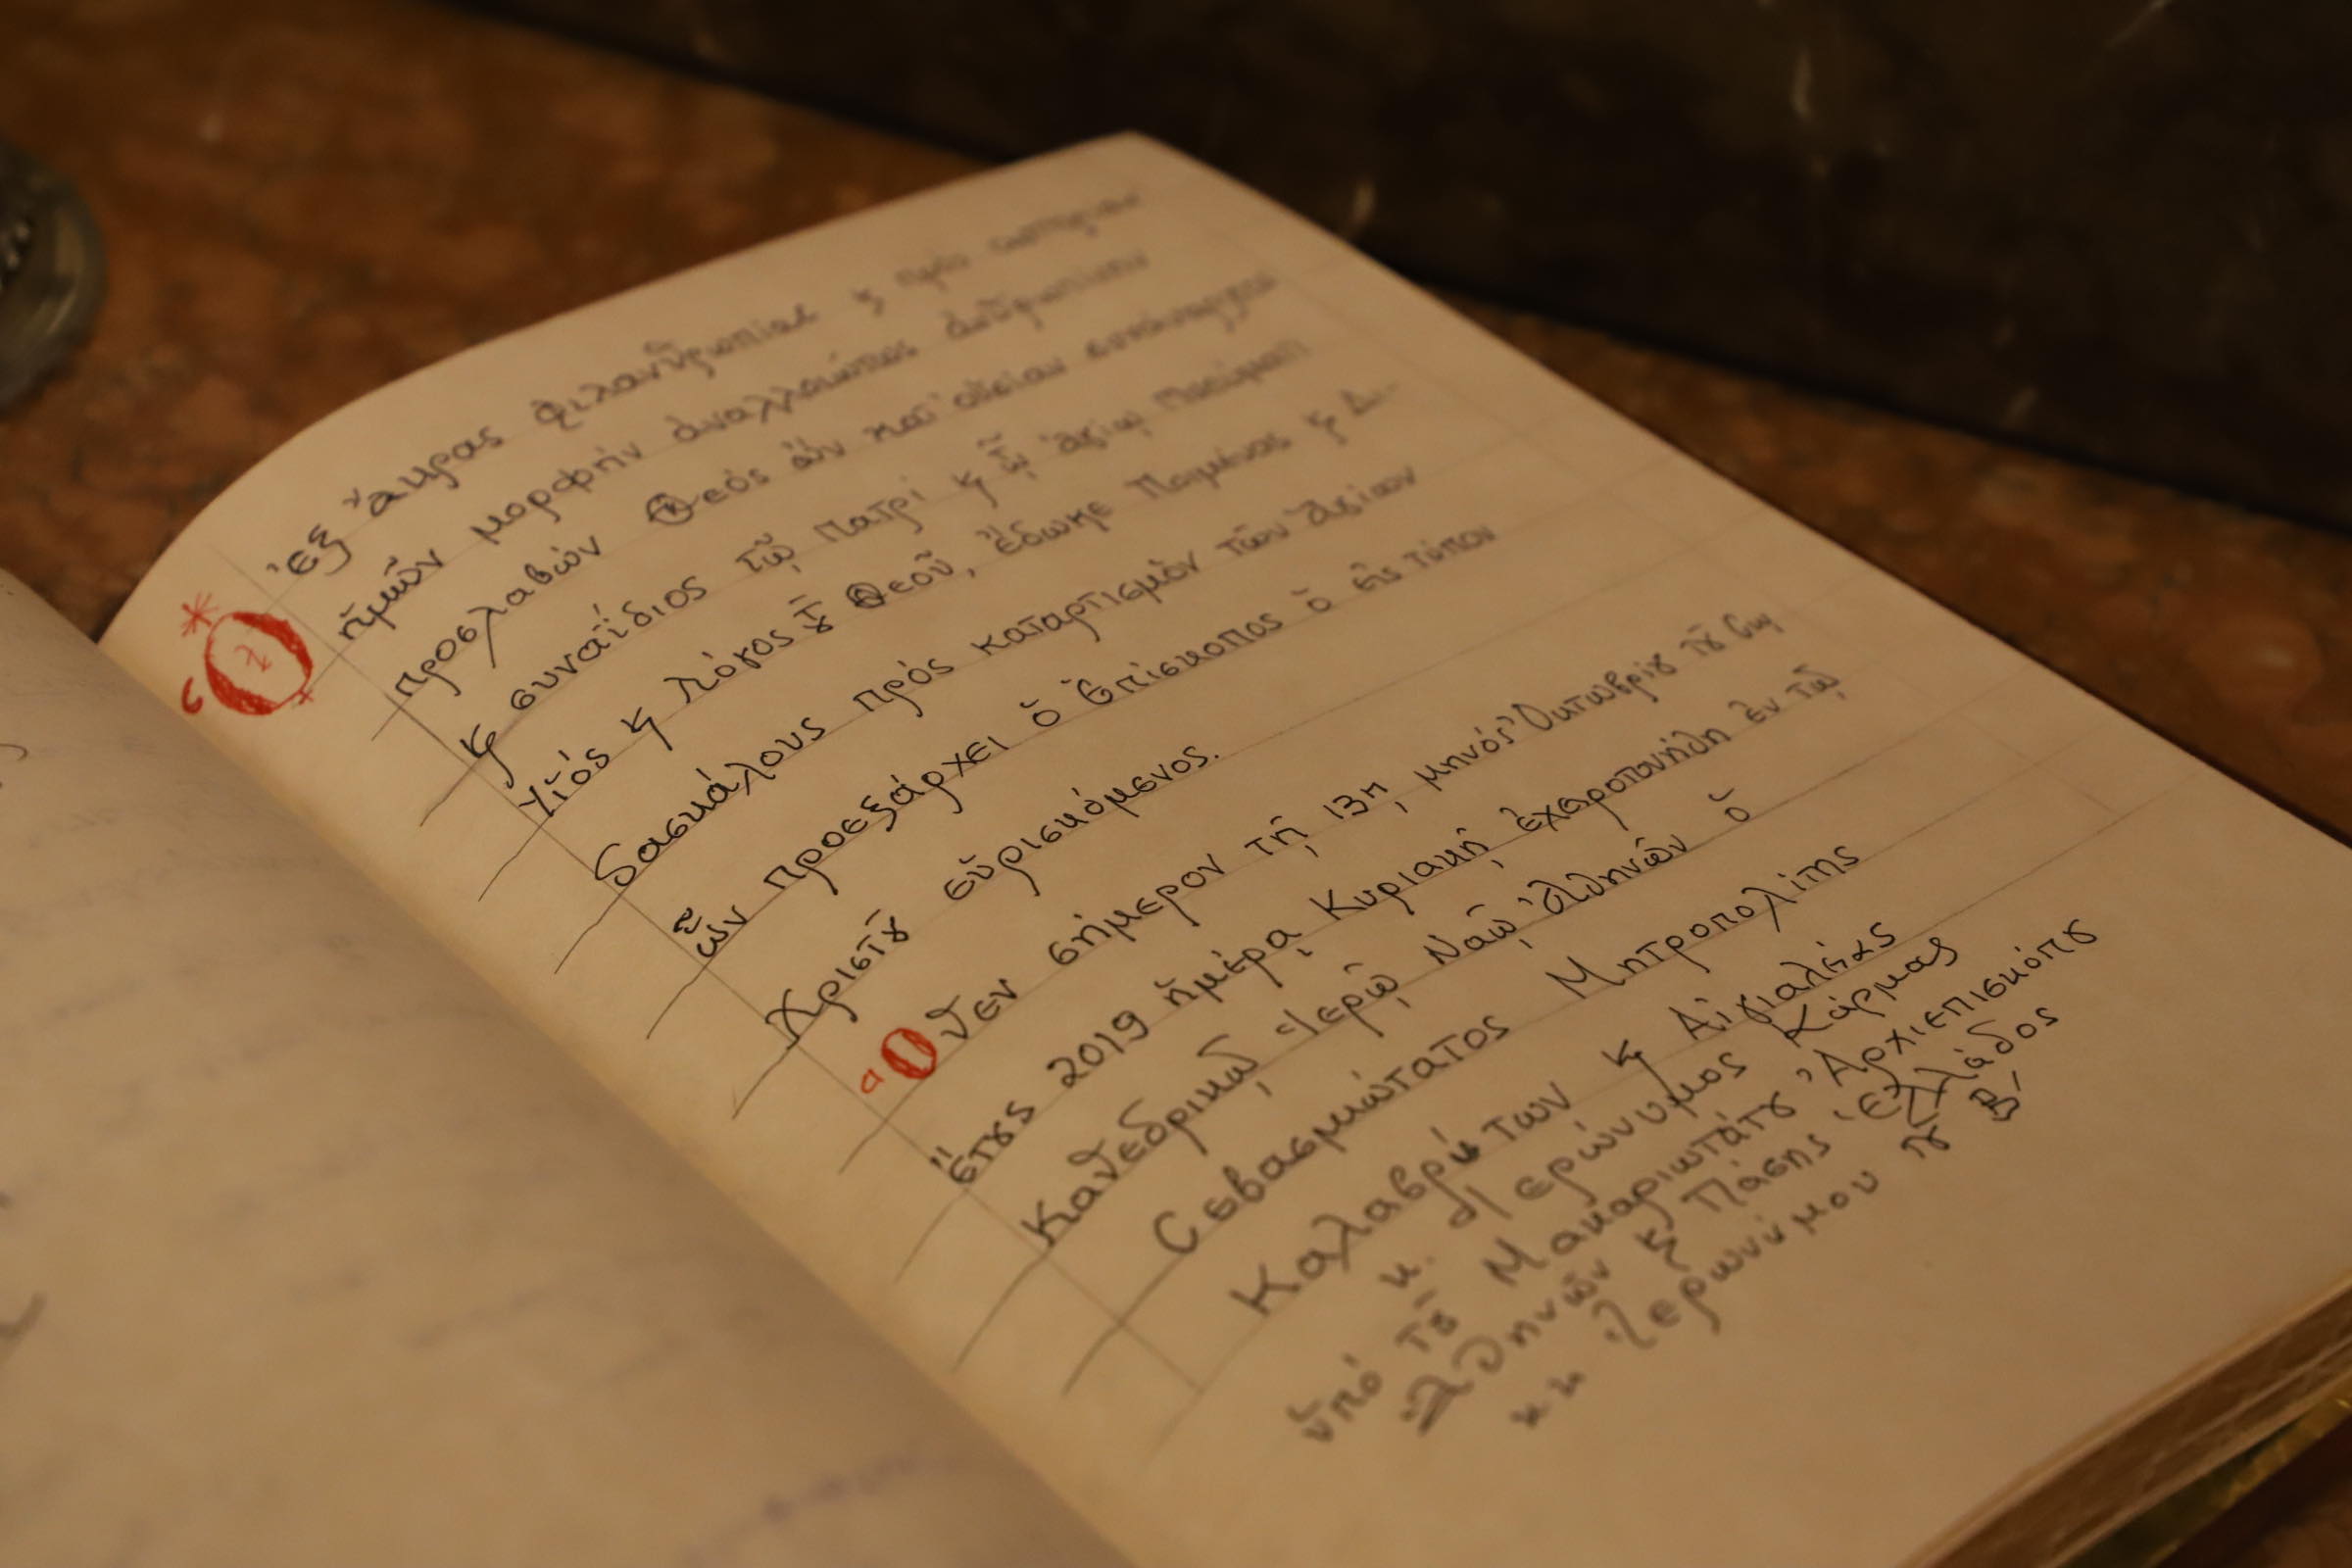 Ὁ ἐξ ἄκρας φιλανθρωπίας ϗ πρὸς σωτηρίαν
ἡμῶν μορφὴν ἀναλλοιώτως ἀνθρωπίνην
προσλαβὼν Θεὸς ὢν κατ' οὐσίαν συνάναρχος
ϗ συναΐδιος τῷ Πατρί ϗ τῷ Ἁγίῳ Πνεύματι
Υἱός ϗ Λόγος τȣ͂ Θεοῦ, ἔδωκε Ποιμένας ϗ Δι-
δασκάλους πρός καταρτισμὸν τῶν Ἁγίων
ὧν προεξάρχει ὁ Ἐπίσκοπος ὁ εἰς τύπον
Χριστȣ͂ εὑρισκόμενος.
Ὅθεν σήμερον τῇ 13η, μηνός Ὀκτωβρίȣ τȣ͂ σῳ
ἔτȣς 2019 ἡμέρᾳ Κυριακῇ ἐχειροτονήθη ἐν τῷ
Καθεδρικῷ Ἱερῷ Ναῷ Ἀθηνῶν ὁ
Σεβασμιώτατος Μητροπολίτης
Καλαβρύτων ϗ Αἰγιαλείας
κ. Ἱερώνυμος Κάρμας
ὑπό τȣ͂ Μακαριωτάτȣ Ἀρχιεπισκόπȣ
Ἀθηνῶν ϗ Πάσης Ἑλλάδος
κκ Ἱερωνύμου τȣ͂ Β΄